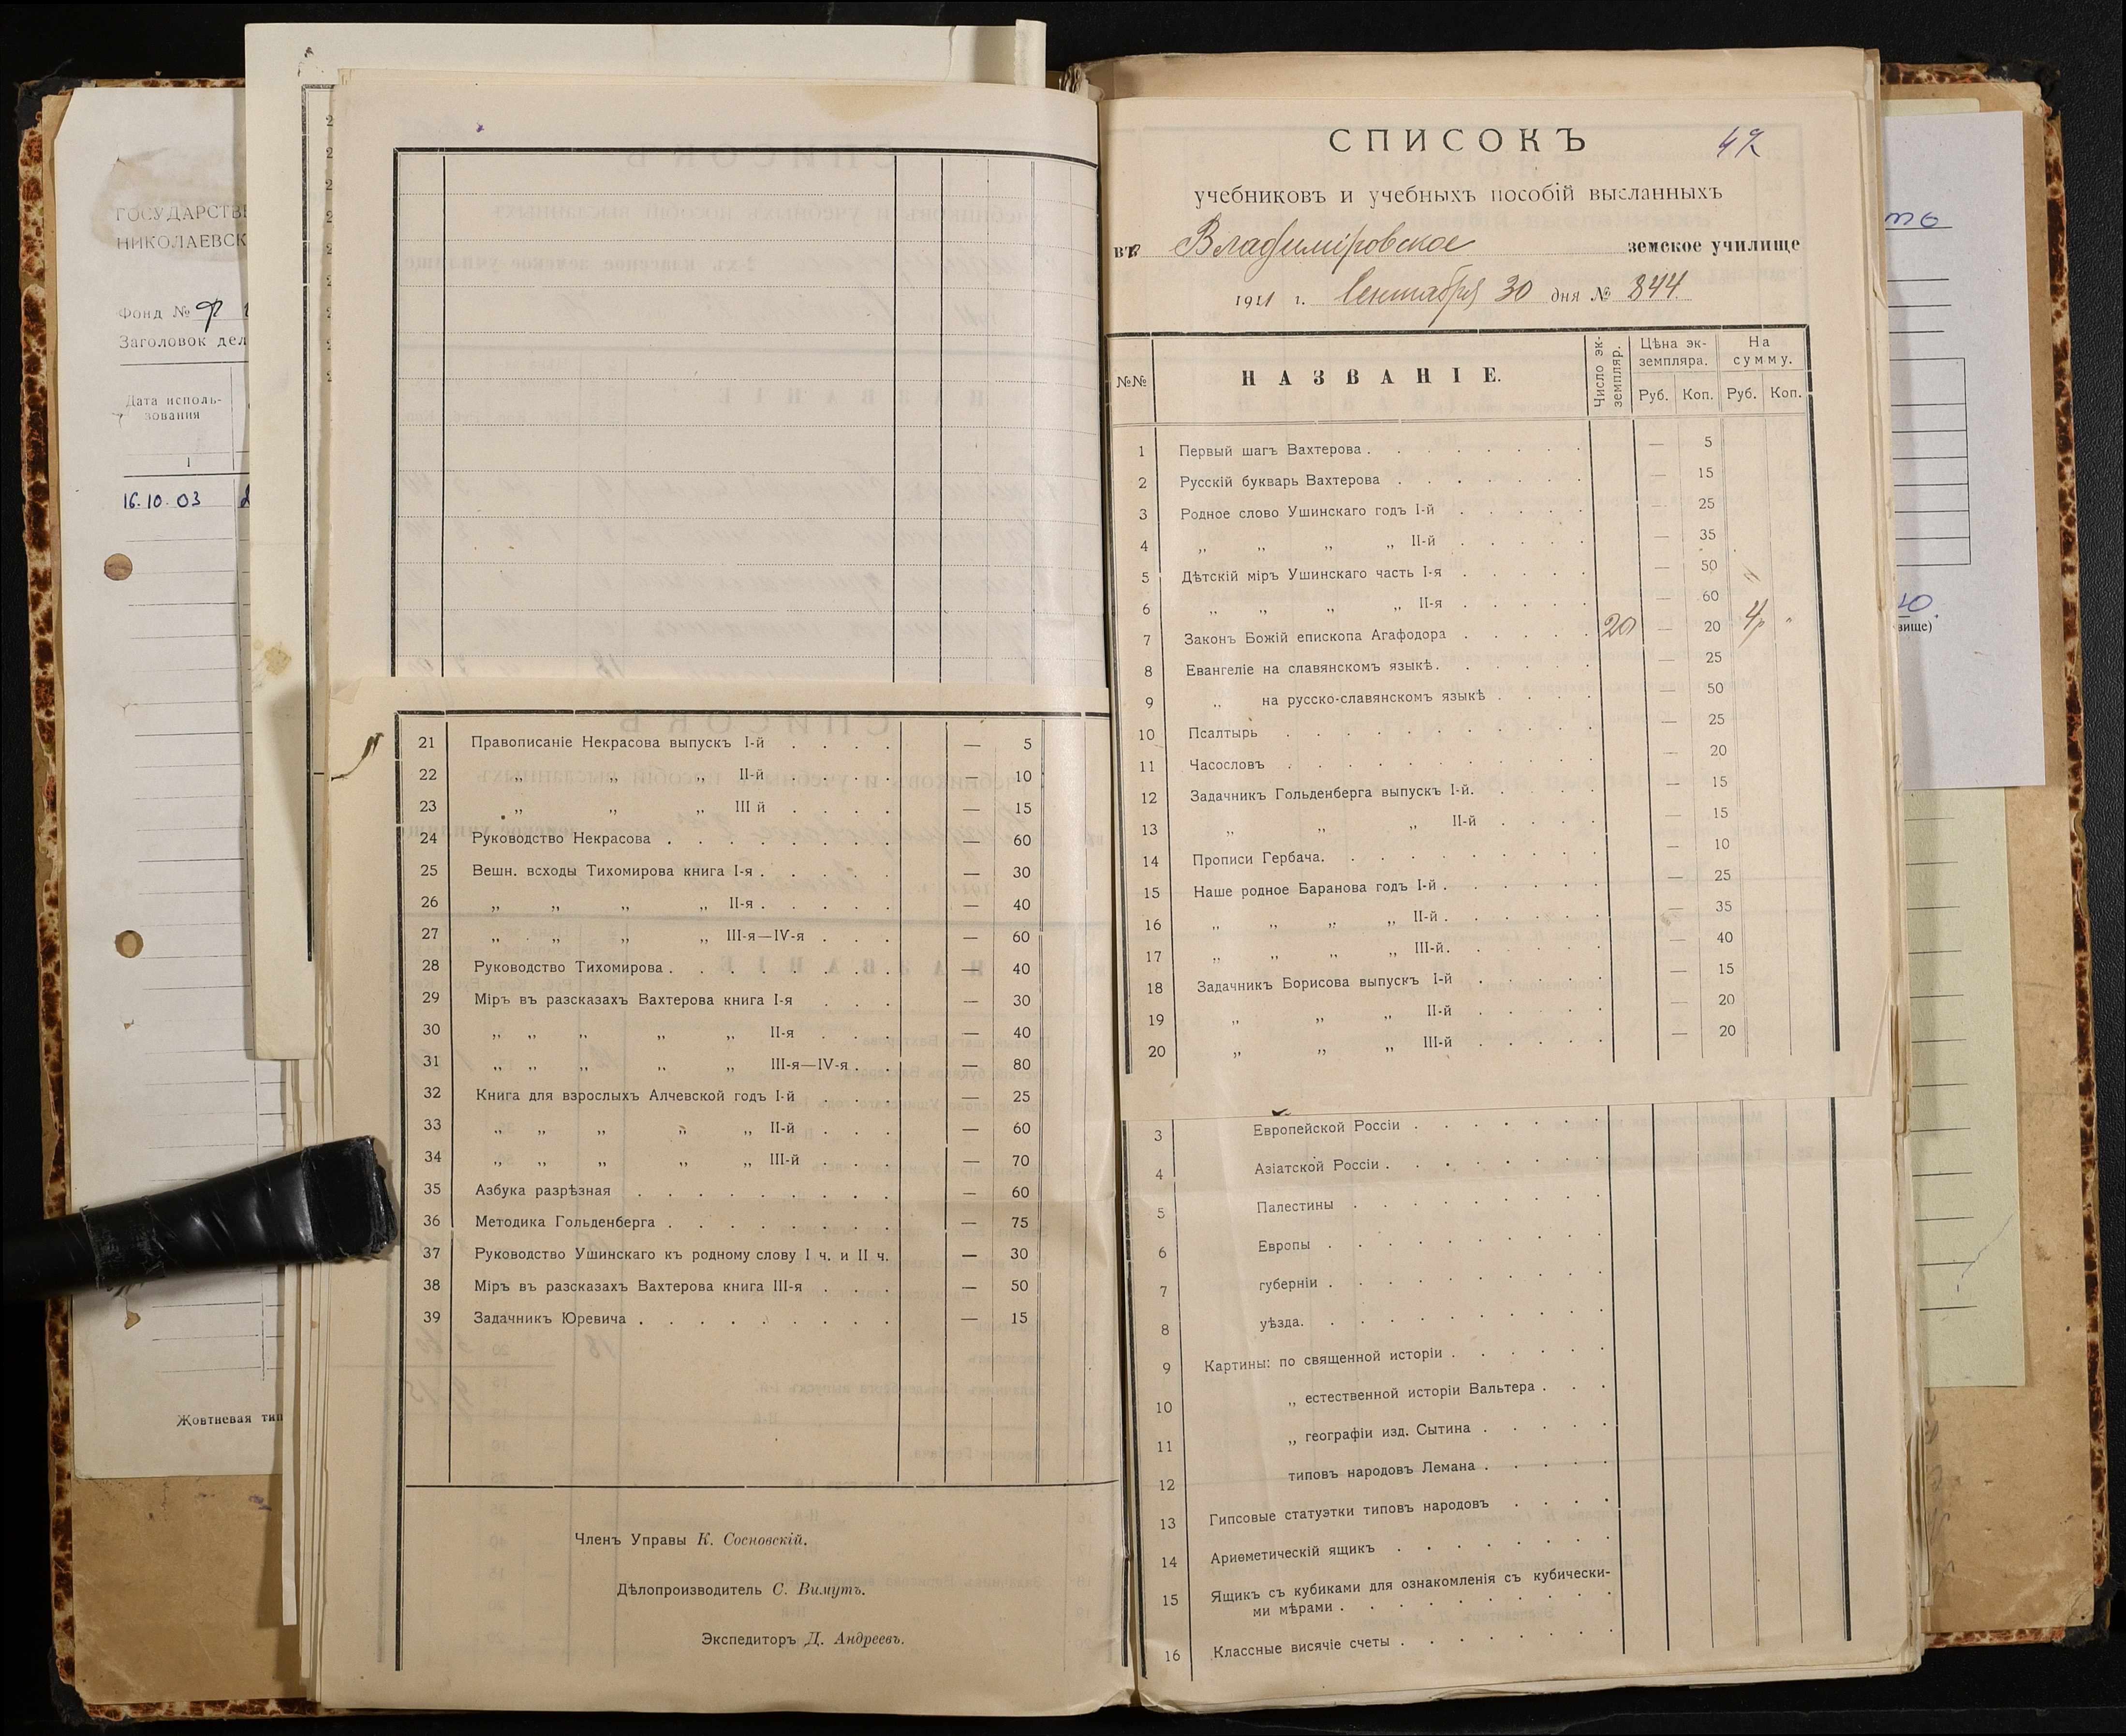 ГОСУДАРСТВ
НИКОЛАЕВСК
Фонд №
Заголовок дел
Дата исполь-
зования
1
16.10.03
Жовтневая тип
21 Правописаніе Некрасова выпускъ I-й . . . . — 5
22 „ „ „ II-й . . . . — 10
23 „ „ „ III й . . . . — 15
24 Руководство Некрасова . . . . . . . . — 60
25 Вешн. всходы Тихомирова книга I-я . . . . . — 30
26 „ „ „ „ II-я . . . . . — 40
27 „ „ „ „ III-я—IV-я . . . — 60
28 Руководство Тихомирова . . . . . . . . — 40
29 Міръ въ разсказахъ Вахтерова книга I-я . . . — 30
30 „ „ „ „ „ II-я . . . — 40
31 „ „ „ „ „ III-я—IV-я . . — 80
32 Книга для взрослыхъ Алчевской годъ I-й . . . — 25
33 „ „ „ „ „ II-й . . . — 60
34 „ „ „ „ „ III-й . . . — 70
35 Азбука разрѣзная . . . . . . . . . — 60
36 Методика Гольденберга . . . . . . . . — 75
37 Руководство Ушинскаго къ родному слову I ч. и II ч. — 30
38 Міръ въ разсказахъ Вахтерова книга III-я . . . — 50
39 Задачникъ Юревича . . . . . . . . . — 15
Членъ Управы К. Сосновскій.
Дѣлопроизводитель С. Вимутъ.
Экспедиторъ Д. Андреевъ.
СПИСОКЪ
учебниковъ и учебныхъ пособій высланныхъ
въ Владиміровское земское училище
1911 г. Сентября 30 дня № 844
№№ НАЗВАНІЕ. Число эк-земпляр. Цѣна эк-земпляра. На сумму.
Руб. Коп. Руб. Коп.
1 Первый шагъ Вахтерова . . . . . . . . — 5
2 Русскій букварь Вахтерова . . . . . . . — 15
3 Родное слово Ушинскаго годъ I-й . . . . . — 25
4 „ „ „ „ II-й . . . . . — 35
5 Дѣтскій міръ Ушинскаго часть I-я . . . . . — 50
6 „ „ „ „ II-я . . . . . — 60
7 Законъ Божій епископа Агафодора . . . . . 20 — 20 4р „
8 Евангеліе на славянскомъ языкѣ . . . . . . — 25
9 „ на русско-славянскомъ языкѣ . . . . — 50
10 Псалтырь . . . . . . . . . . . — 25
11 Часословъ . . . . . . . . . . . — 20
12 Задачникъ Гольденберга выпускъ I-й. . . . . — 15
13 „ „ „ II-й . . . . — 15
14 Прописи Гербача. . . . . . . . . . — 10
15 Наше родное Баранова годъ I-й . . . . . . — 25
16 „ „ „ „ II-й . . . . . . — 35
17 „ „ „ „ III-й. . . . . . — 40
18 Задачникъ Борисова выпускъ I-й . . . . . — 15
19 „ „ „ II-й . . . . . — 20
20 „ „ „ III-й . . . . . — 20
3 Европейской Россіи . . . . . . .
4 Азіатской Россіи . . . . . . . .
5 Палестины . . . . . . . . .
6 Европы . . . . . . . . . .
7 губерніи . . . . . . . . . .
8 уѣзда. . . . . . . . . . .
9 Картины: по священной исторіи . . . . . .
10 „ естественной исторіи Вальтера . . .
11 „ географіи изд. Сытина . . . . .
12 типовъ народовъ Лемана . . . . .
13 Гипсовые статуэтки типовъ народовъ . . . .
14 Ариѳметическій ящикъ . . . . . . . .
15 Ящикъ съ кубиками для ознакомленія съ кубически-
ми мѣрами . . . . . . . . . .
16 Классные висячіе счеты . . . . . . . .
вище)